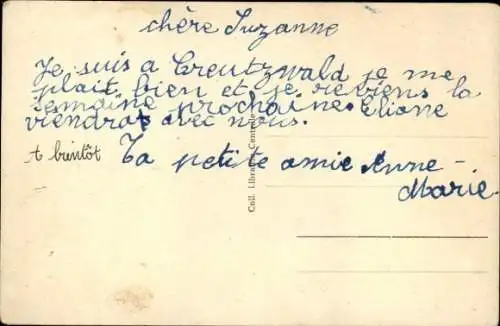 chère Suzanne
Je suis a Creutzwald je me
plait bien et je reviens la
semaine prochaine. Eliane
viendrat avec nous.
A bientôt
Ta petite amie Anne-
Marie.
Coll. Librairie Centrale